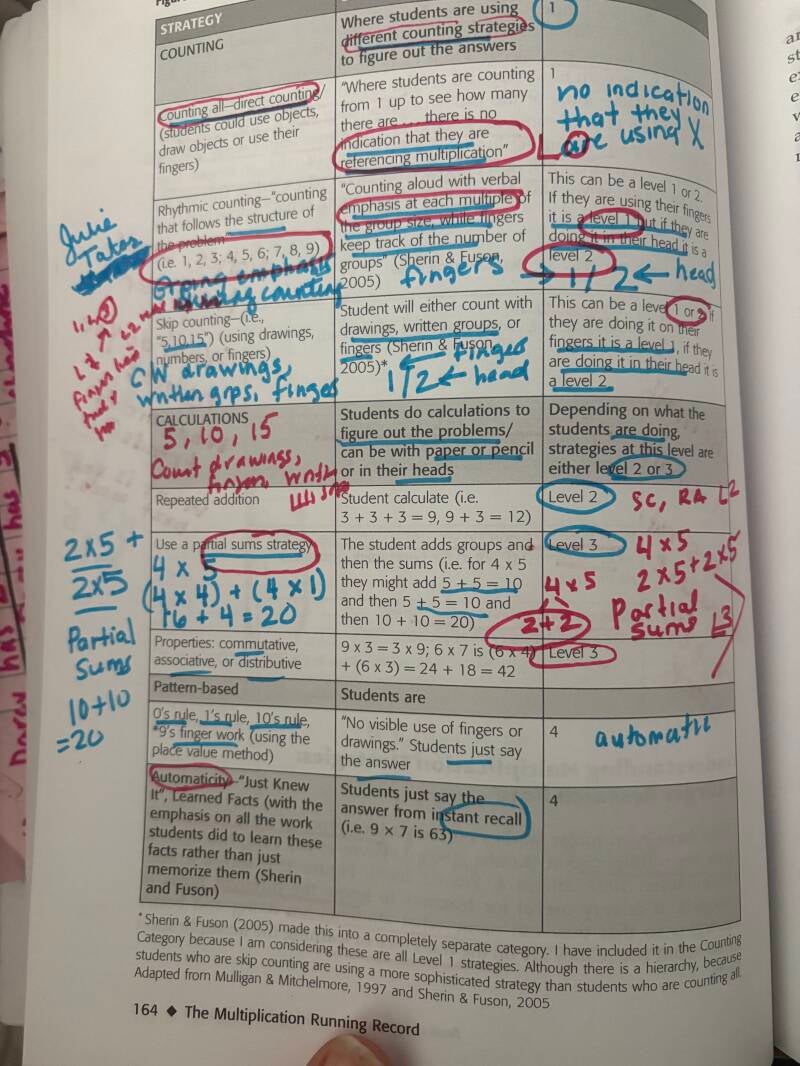 STRATEGY
COUNTING
Where students are using
different counting strategies
to figure out the answers
1
Counting all–direct counting/
(students could use objects,
draw objects or use their
fingers)
"Where students are counting
from 1 up to see how many
there are . . . there is no
indication that they are
referencing multiplication"
1
no indication
that they
are using X
Rhythmic counting–"counting
that follows the structure of
the problem"
(i.e. 1, 2, 3; 4, 5, 6; 7, 8, 9)
Giving emphasis
during counting
"Counting aloud with verbal
emphasis at each multiple of
the group size, while fingers
keep track of the number of
groups" (Sherin & Fuson,
2005)
fingers → 1/2 ← head
This can be a level 1 or 2.
If they are using their fingers
it is a level 1 but if they are
doing it in their head it is a
level 2
Julie
Takes
Skip counting—(i.e.,
"5,10,15") (using drawings,
numbers, or fingers)
CW drawings,
written grps, finges
Student will either count with
drawings, written groups, or
fingers (Sherin & Fuson
2005)*
← finges
1/2 ← head
This can be a level 1 or 2 if
they are doing it on their
fingers it is a level 1, if they
are doing it in their head it is
a level 2
CALCULATIONS
5, 10, 15
Count drawings,
Students do calculations to
figure out the problems/
can be with paper or pencil
or in their heads
Depending on what the
students are doing,
strategies at this level are
either level 2 or 3
Repeated addition
Student calculate (i.e.
3 + 3 + 3 = 9, 9 + 3 = 12)
Level 2
SC, RA L2
Use a partial sums strategy
4 x 5
(4 x 4) + (4 x 1)
16 + 4 = 20
The student adds groups and
then the sums (i.e. for 4 x 5
they might add 5 + 5 = 10
and then 5 + 5 = 10 and
then 10 + 10 = 20)
4 x 5
2 + 2
Level 3
4 x 5
2 x 5 + 2 x 5
Partial
sums L3
2x5 +
2x5
Partial
Sums
10+10
=20
Properties: commutative,
associative, or distributive
9 x 3 = 3 x 9; 6 x 7 is (6 x 4)
+ (6 x 3) = 24 + 18 = 42
Level 3
Pattern-based
Students are
0's rule, 1's rule, 10's rule,
*9's finger work (using the
place value method)
"No visible use of fingers or
drawings." Students just say
the answer
4
automatic
Automaticity–"Just Knew
It", Learned Facts (with the
emphasis on all the work
students did to learn these
facts rather than just
memorize them (Sherin
and Fuson)
Students just say the
answer from instant recall
(i.e. 9 × 7 is 63)
4
*Sherin & Fuson (2005) made this into a completely separate category. I have included it in the Counting
Category because I am considering these are all Level 1 strategies. Although there is a hierarchy, because
students who are skip counting are using a more sophisticated strategy than students who are counting all.
Adapted from Mulligan & Mitchelmore, 1997 and Sherin & Fuson, 2005
164 ◆ The Multiplication Running Record